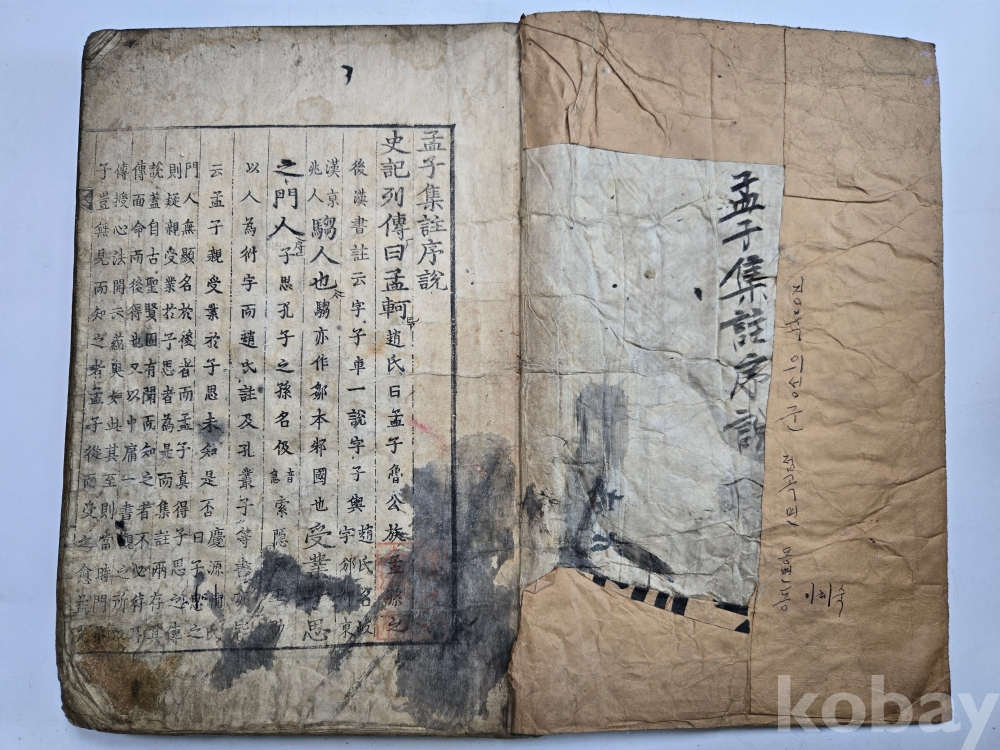 孟子集註序說
경북 의성군 점곡면
孟子集註序說
史記列傳曰孟軻趙氏曰孟子魯公族孟孫之
後漢書註云字子車一說字子輿趙氏名岐字邠卿東
漢京兆人騶人也騶亦作鄒本邾國也受業子思
之門人子思孔子之孫名伋音急索隱
以人為衍字而趙氏註及孔叢子等書亦皆
云孟子親受業於子思未知是否慶源輔氏曰子思之
門人無顯名於後者而孟子真得子思之傳
則疑親受業於子思者為是而集註兩存其
說蓋自古聖賢固有聞而知之者不必待耳
傳面命而後得也又以中庸一書觀之所以
傳授心法開示蘊奧如此其至則當時門弟
子豈無見而知之者孟子從而受之愈
kobay